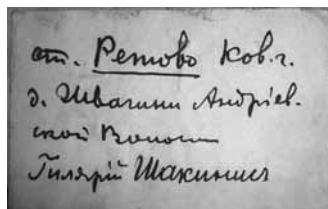 ст. Ретово Ков. г.
д. Шваглини Андріев-
ской Волости
Гилярій Шакинис